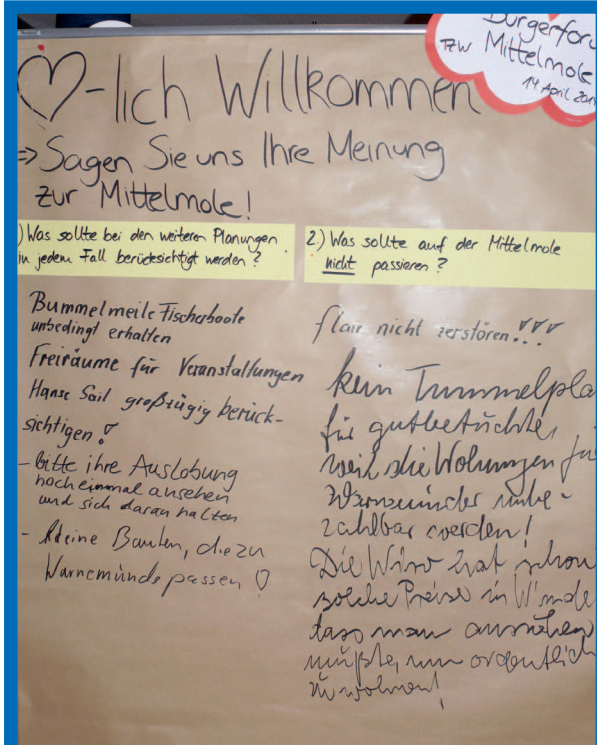 Bürgerforu
TZW Mittelmole
14 April 201
♡-lich Willkommen
⇒ Sagen Sie uns Ihre Meinung
zur Mittelmole!
) Was sollte bei den weiteren Planungen
in jedem Fall berücksichtigt werden?
2.) Was sollte auf der Mittelmole
nicht passieren?
Bummelmeile Fischerboote
unbedingt erhalten
Freiräume für Veranstaltungen
Hanse Sail großzügig berück-
sichtigen!
- bitte ihre Auslobung
noch einmal ansehen
und sich daran halten
- kleine Bauten, die zu
Warnemünde passen ♡
flair nicht zerstören!!!
kein Tummelpla
für gutbetuchte,
weil die Wohungen fü
Warnemünder unbe-
zahlbar werden!
Die Wiro hat schon
solche Preise in W'münde
dass man ausziehen
müßte, um ordentlich
zu wohnen!